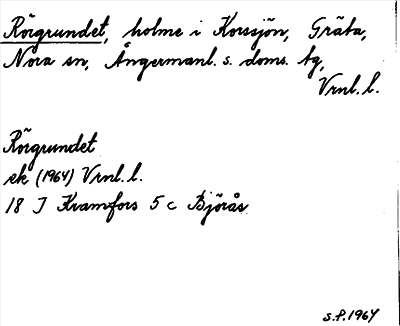 Rörgrundet, holme i Korssjön, Gräta,
Nora sn, Ångermanl. s. doms. tg,
Vrnl. l.
Rörgrundet
ek (1964) Vrnl. l.
18 J Kramfors 5 c Björås
S.P. 1964